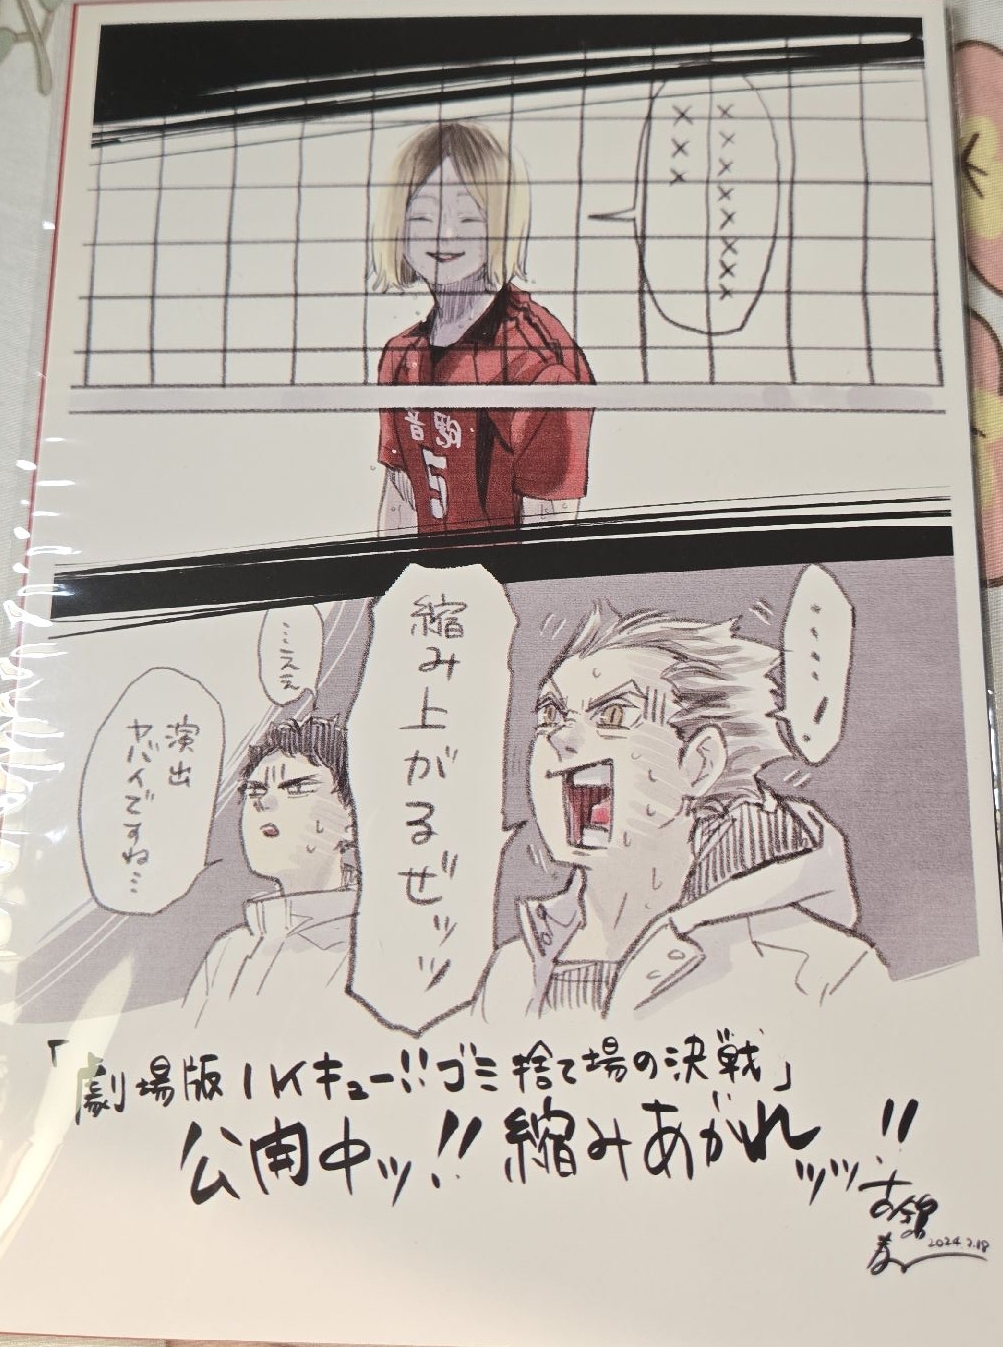 ×××××××××
×××
音駒
5
……!
縮み上がるぜッッ
…ええ
演出
ヤバイですね…
「劇場版ハイキュー!!ゴミ捨て場の決戦」
公開中ッ!!縮みあがれッッ!!
古舘春一
2024.2.18